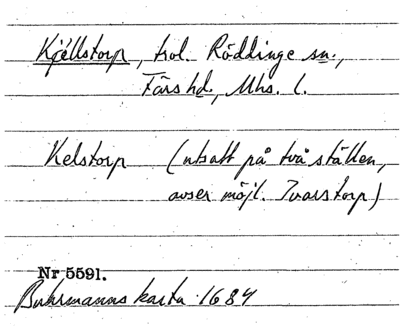 Kjellstorp, trol. Röddinge sn.,
Färs hd., Mhs. l.
Kelstorp (utsatt på två ställen,
avser möjl. Ivarstorp)
Nr 5591.
Buhrmanns karta 1684